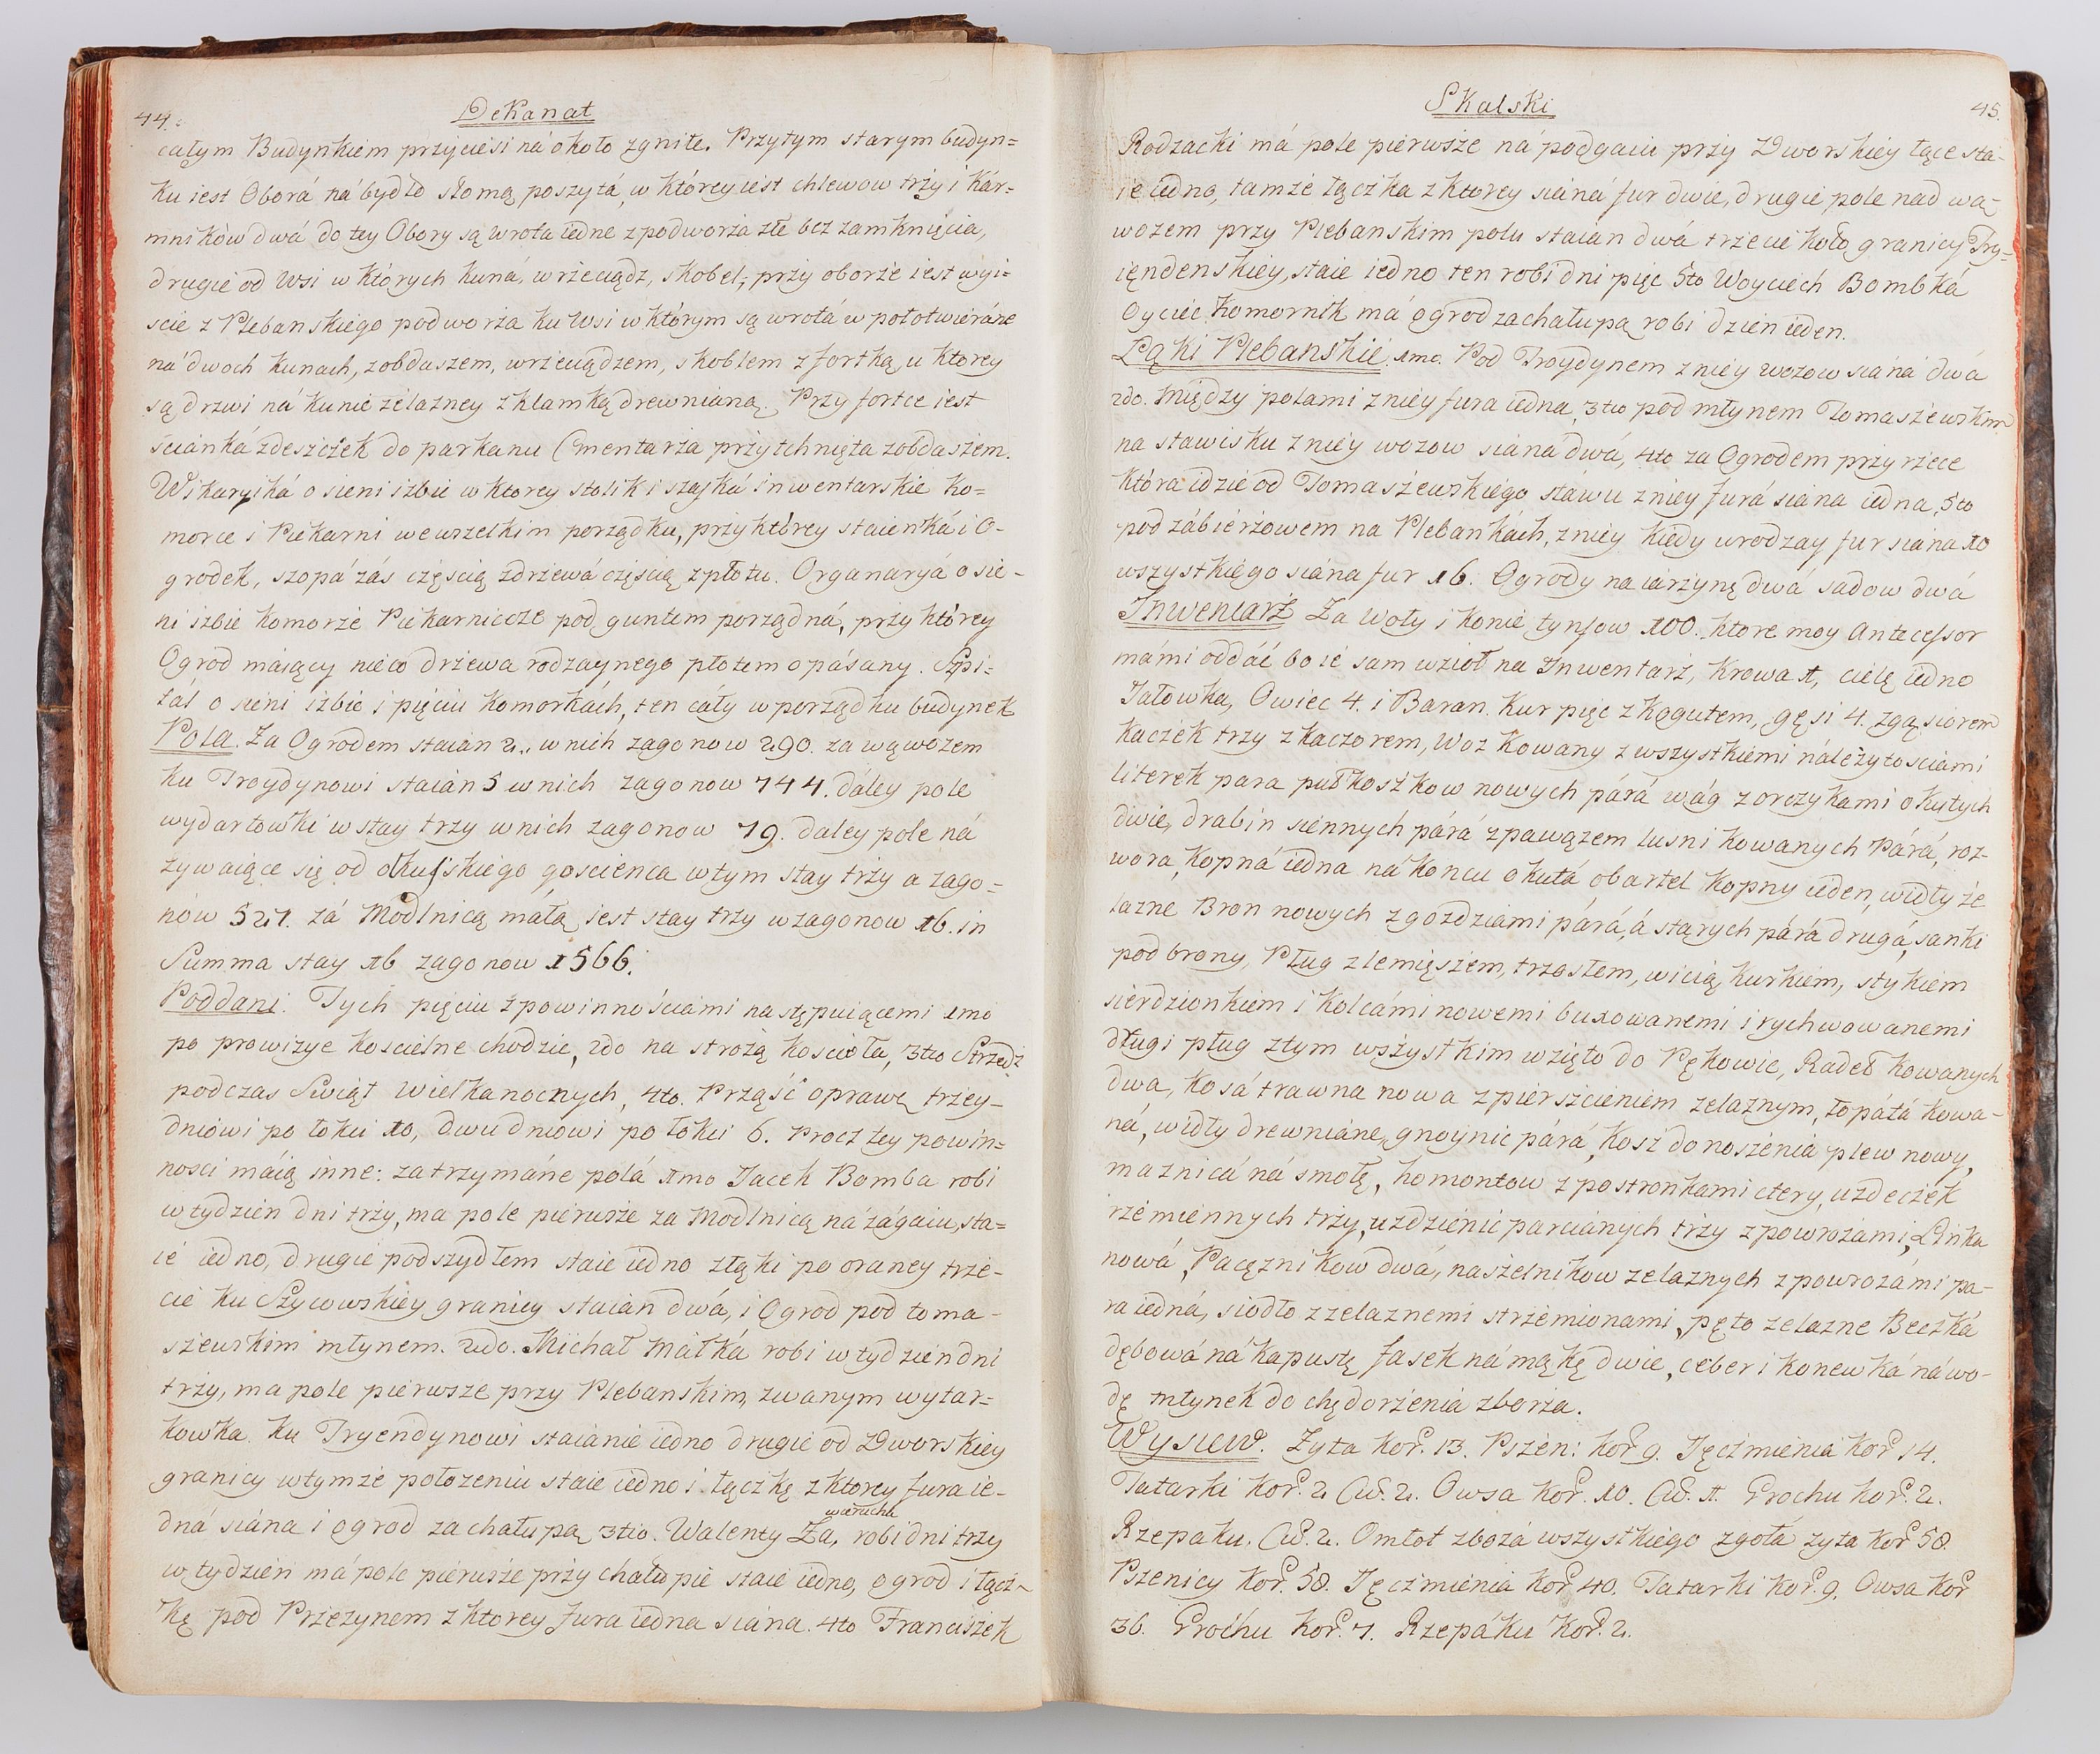 44.
Dekanat
całym Budynkiem przyciesi ná około zgniłe. Przytym starym budyn=
ku iest Oborá ná bydło słomą poszytá, w którey iest chlewow trży i kár=
mników dwá do tey Obory są wrota iedne z podworża złe bez zamknięcia,
drugie od Wsi w których kuná, wrżeciądz, skobel, przy oborże iest wyi=
scie z Plebanskiego podworża ku Wsi w którym są wrotá w pół otwieráne
ná dwoch kunach, zobdaszem, wrzeciądzem, skoblem z fortką, u ktorey
są drzwi ná kunie żelazney z klamką drewnianą. Przy fortce iest
scianká zdeszczek do parkanu Cmentarża przytchnięta zobdaszem.
Wikaryiká o sieni izbie w ktorey stolik i szafka inwentarskie Ko=
morce i Piekarni we wszelkim porządku, przy którey staienká i O-
grodek, szopá zás częścią zdrzewá częścią z płotu. Organaryá o sie-
ni izbie komorże Piekarniczce pod guntem porządná, przy którey
Ogrod máiący nieco drżewa rodzaynego płotem opásany. Szpi=
tál o sieni izbie i pięciu Komorkách, ten cáły w porządku budynek
Pola. Za Ogrodem staian 2., w nich zagonow 290. za wąwozem
ku Troydynowi staián 5 w nich zagonow 744. dáley pole
wydartowki w stay trzy w nich zagonow 79. daley pole ná
zywaiące się od olkuskiego goscienca w tym stay trży a zago=
now 521. zá Modlnicą máłą iest stay trzy w zagonow 16. in
Summa stay 16 zagonow 1566.
Poddani. Tych pięciu z powinnościami następuiącemi 1mo
po prowizye Koscielne chodzic, 2do na strożą kosciola, 3tio Strzedz
podczas Swiąt Wielkanocnych, 4to. Prząść oprawę trzey-
dniowi po łokci 10, dwudniowi po łokci 6. Procz tey powin=
nosci máią inne: za trzymáne polá 1mo Jacek Bomba robi
w tydzien dni trży, ma pole pierwsze za Modlnicą ná zágaiu, sta=
ie iedno, drugie pod szydłem staie iedno złąki po oraney trze-
cie ku Szycowskiey granicy staian dwá, i Ogrod pod toma-
szewskim młynem. 2do. Michał Matká robi w tydzien dni
trży, ma pole pierwsze przy Plebanskim, zwanym wytar=
kowka ku Tryendynowi staianie iedno drugie od Dworskiey
granicy w tymże położeniu staie iedno i łączkę z ktorey fura ie-
dná siána i ogrod za chałupą 3tio. Walenty Za, robi dni trzy
w tydzien má pole pierwsze przy chałupie staie iedno, ogrod i łącz-
kę pod Prżezynem z ktorey fura iedna siána. 4to Franciszek
Skalski
45.
Rodzacki má pole pierwsze ná podgaiu przy Dworskiey łące sta-
ie iedno, tamże łączka z ktorey siáná fur dwie, drugie pole nad wą-
wozem przy Plebanskim polu staian dwá trżecie koło granicy Try=
ięndenskiey, staie iedno ten robi dni pięc 5to Woyciech Bombká
Oyciec Komornik má ogrod za chałupą robi dzien ieden.
Łąki Plebanskie. 1mo. Pod Troydynem z niey wozow siáná dwá
2do. Między polami z niey fura iedna, 3tio pod młynem Tomaszewskim
na stawisku z niey wozow siáná dwá, 4to za Ogrodem przy rzece
która idzie od Tomaszewskiego stáwu z niey furá siána iedna, 5to
pod zábierżowem na Plebankách, z niey kiedy urodzay fur siána 10
wszystkiego siána fur 16. Ogrody na iarżynę dwá sadow dwá
Inwentarż Za Woły i Konie tynfow 100. ktore moy Antecessor
má mi oddáć bo ie sam wzioł na Inwentarż, Krowa 1, cielę iedno
Jałowka, Owiec 4. i Baran. Kur pięc z Kogutem, gęsi 4. zgąsiorem
Kaczek trzy z Kaczorem, Woz Kowany z wszystkiemi náleżytosciami
literek para pułkoszkow nowych párá wág z orczykami okutych
dwie, drabin siennych párá z pawązem lusni kowanych Párá, roz-
wora, Kopná iedna ná koncu okutá obartel kopny ieden, widły że
lazne Bron nowych zgozdziami párá, á starych párá drugá, sanki
pod brony, Pług z lemięszem, trzosłem, wicią, kurkiem, stykiem
sierdzionkiem i kolcámi nowemi buxowanemi i rychwowanemi
długi pług z tym wszystkim wzięto do Pękowic, Radeł kowanych
dwa, kosá trawna nowa z pierszcieniem zelaznym, łopátá kowa-
ná, widły drewniáne, gnoynic párá, Kosz do noszenia plew nowy,
maznicá ná smołę, homontow z postronkami cztery, uzdeczek
rzemiennych trży, uzdzienic parcianych trży z powrozámi, Linka
nowá, Pacęznikow dwá, naszelnikow zelaznych z powrozámi pa-
ra iedná, siodło z zelaznemi strzemionami, pęto zelazne Beczká
dębowá ná kapustę fasek ná mąkę dwie, ceber i konewká ná wo-
dę młynek do chędorzenia zborża.
Wysiew. Zyta Kor. 13. Pszen: kor 9. Jęczmienia Kor 14.
Tatarki Kor. 2 Cw. 2. Owsa Kor. 10. Cw. 1. Grochu Kor. 2.
Rzepaku. Cw. 2. Omłot zbożá wszystkiego zgołá zyta Kor 58.
Pszenicy Kor. 58. Jęczmienia Kor 40. Tatarki Kor. 9. Owsa Kor
36. Grochu Kor. 7. Rzepáku Kor. 2.